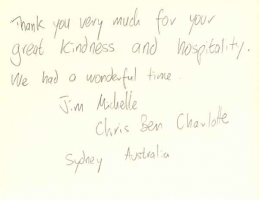 Thank you very much for your
great kindness and hospitality.
We had a wonderful time.
Jim Michelle
Chris Ben Charlotte
Sydney Australia